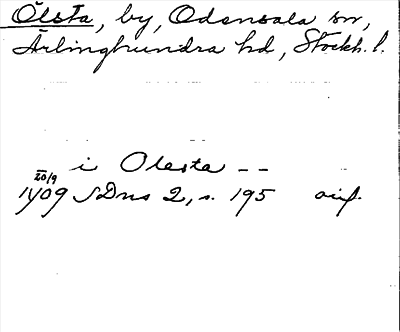 Ölsta, by, Odensala sn,
Ärlinghundra hd, Stockh. l.
i Olesta --
20/9
1409 SDns 2, s. 195 avskr.